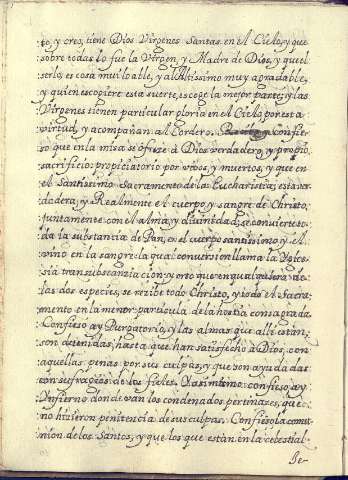 to, y creo, tiene Dios Virgenes Santas en el Cielo, y que
sobre todas lo fue la Virgen, y Madre de Dios, y que el
serlo, es cosa muy loable, y al Altissimo muy agradable,
y quien escogiere esta suerte, escoge la mejor parte, y las
Virgenes tienen particular gloria en el Cielo por esta
virtud, y acompañan al Cordero. confies
so que en la misa se ofrece a Dios verdadero, y propio
sacrificio propiciatorio por vivos, y muertos, y que en
el Santissimo Sacramento de la Eucharistia, esta ver
dadera, y Realmente el cuerpo, y sangre de Christo,
juntamente con el alma, y divinidad; se convierte to
da la substancia de Pan, en el cuerpo santissimo, y el
vino en la sangre la qual conversion llama la Ygle
sia transubstanciacion, y creo que en qualquiera de
las dos especies, se recibe todo Christo, y todo el Sacra
mento en la menor particula de la hostia consagrada.
Confieso ay Purgatorio, y las almas que alli estan,
son detenidas, hasta que han satisfecho a Dios, con
aquellas penas por sus culpas, y que son ayudadas
con sufragios de los fieles. Yassimismo confieso ay
Ynfierno donde van los condenados pertinazes, que
no hizieron penitencia de sus culpas. Confieso la comu
nion de los Santos, y que los que están en la celestial
Je-